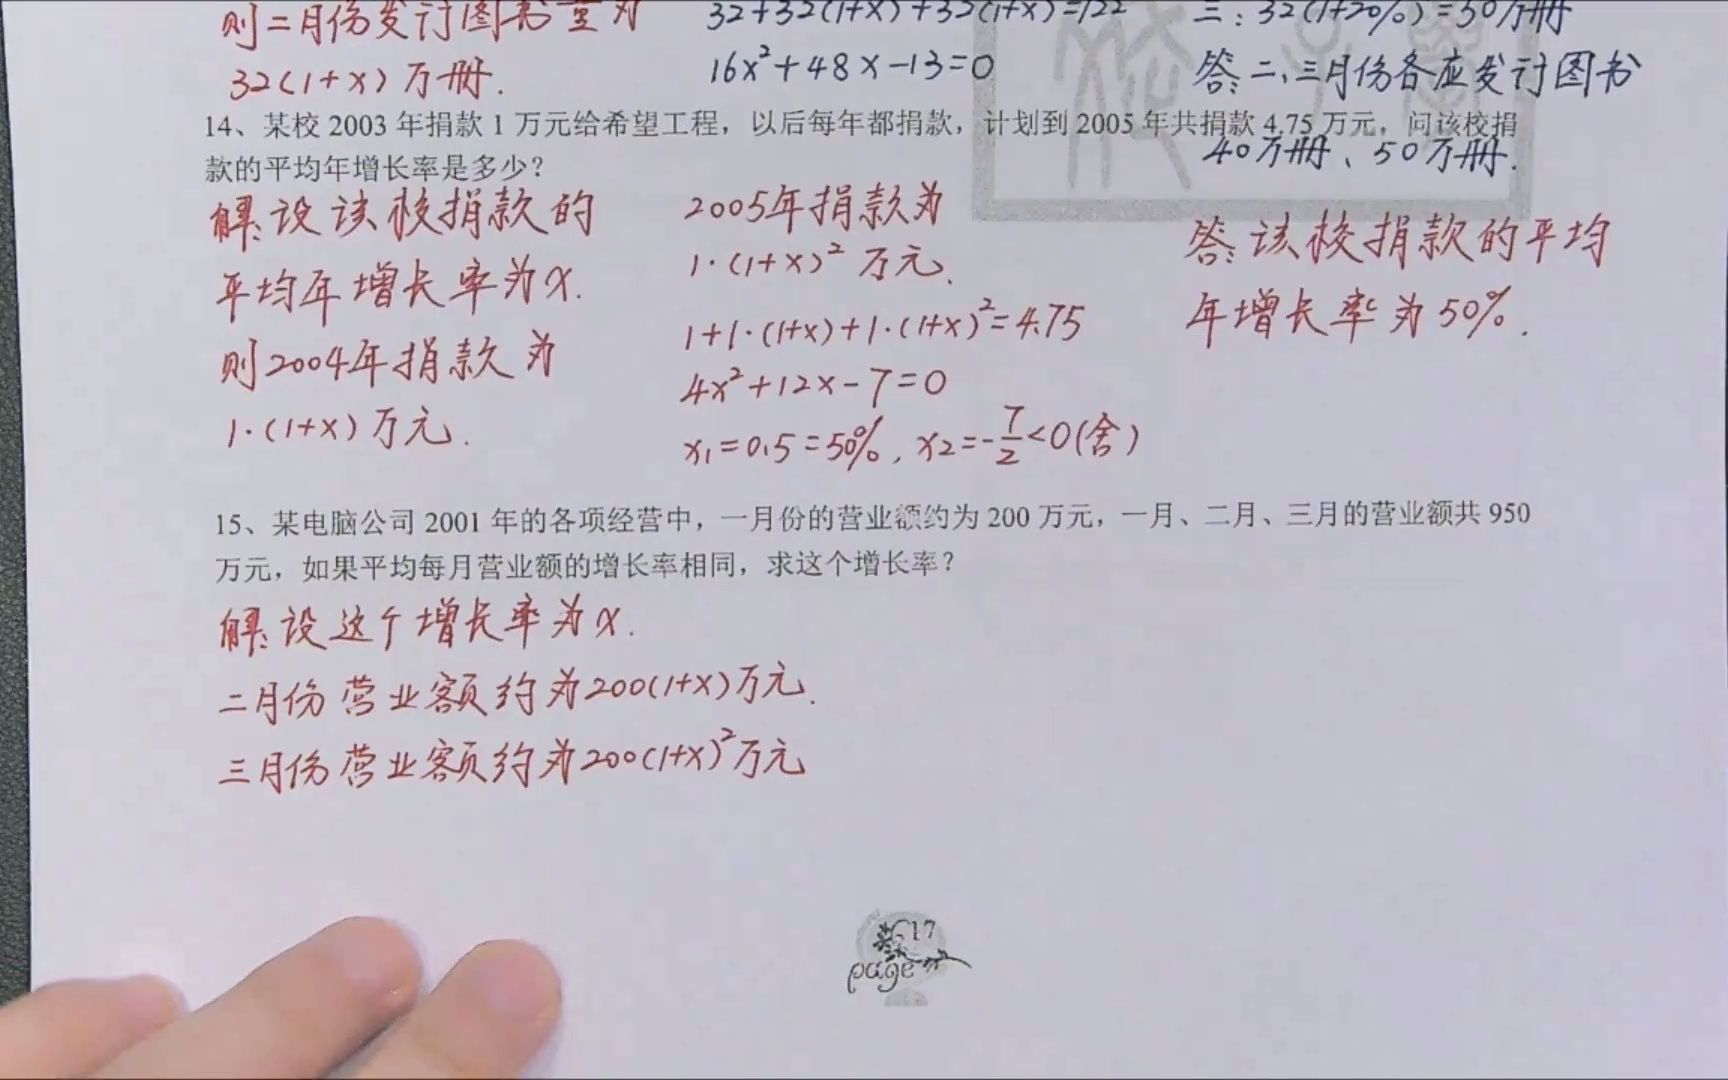 则二月份发订图书量为
32(1+x)万册.
32+32(1+x)+32(1+x)²=122
16x²+48x-13=0
三:32(1+20%)²=50万册
答:二、三月份各应发订图书
40万册、50万册.
14、某校 2003 年捐款 1 万元给希望工程，以后每年都捐款，计划到 2005 年共捐款 4.75 万元，问该校捐
款的平均年增长率是多少?
解:设该校捐款的
平均年增长率为x.
则2004年捐款为
1·(1+x)万元.
2005年捐款为
1·(1+x)²万元.
1+1·(1+x)+1·(1+x)²=4.75
4x²+12x-7=0
x₁=0.5=50%, x₂=-7/2<0(舍)
答:该校捐款的平均
年增长率为50%.
15、某电脑公司 2001 年的各项经营中，一月份的营业额约为 200 万元，一月、二月、三月的营业额共 950
万元，如果平均每月营业额的增长率相同，求这个增长率?
解:设这个增长率为x.
二月份营业额约为200(1+x)万元.
三月份营业额约为200(1+x)²万元
17
page